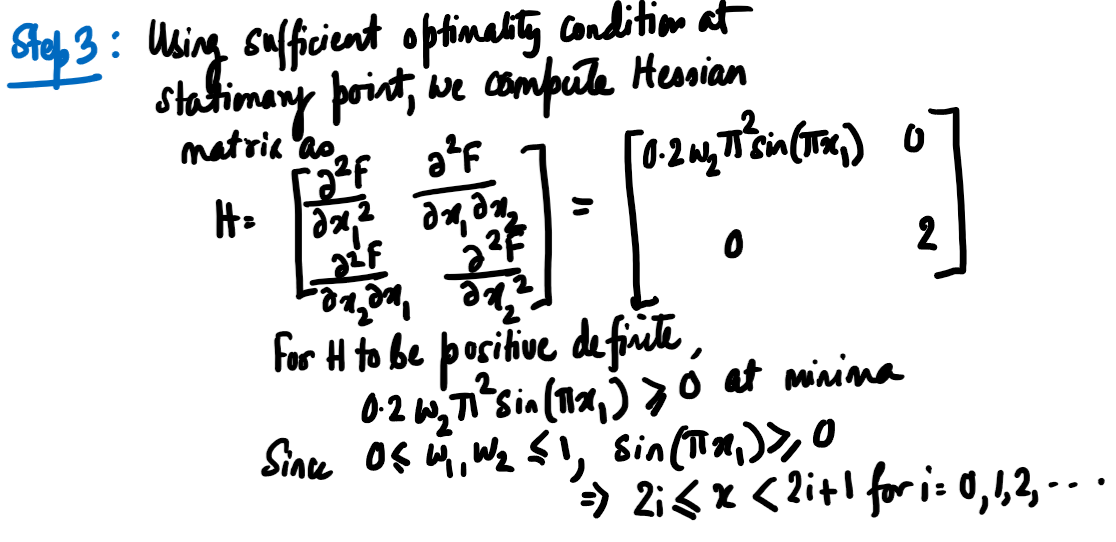 Step 3: Using sufficient optimality condition at
stationary point, we compute Hessian
matrix as
H = [∂²F/∂x₁² ∂²F/∂x₁∂x₂; ∂²F/∂x₂∂x₁ ∂²F/∂x₂²] = [0.2w₂π²sin(πx₁) 0; 0 2]
For H to be positive definite,
0.2 w₂π²sin(πx₁) ⩾ 0 at minima
Since 0 ≤ w₁, w₂ ≤ 1, sin(πx₁) ⩾ 0
⇒ 2i ≤ x < 2i+1 for i = 0,1,2, ...